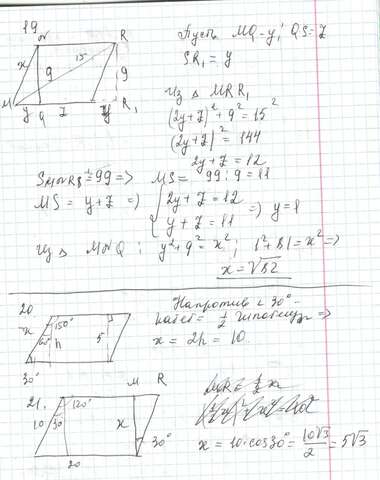 19
N R
x 9 15 9
M y Q z S y R₁
Пусть MQ = y; QS = z
SR₁ = y
Из Δ MRR₁
(2y+z)² + 9² = 15²
(2y+z)² = 144
2y+z = 12
S = 99 => MS = 99 : 9 = 11
MS = y+z => { 2y+z = 12
y+z = 11 => y = 1
Из Δ MNQ : y² + 9² = x² ; 1² + 81 = x² =>
x = √82
20
x 150° 60° h 5
30°
Напротив < 30° -
катет = ½ гипотенузы =>
x = 2h = 10
21.
M R
10 30° 120° x 30°
20
x = 10·cos30° = 10√3/2 = 5√3